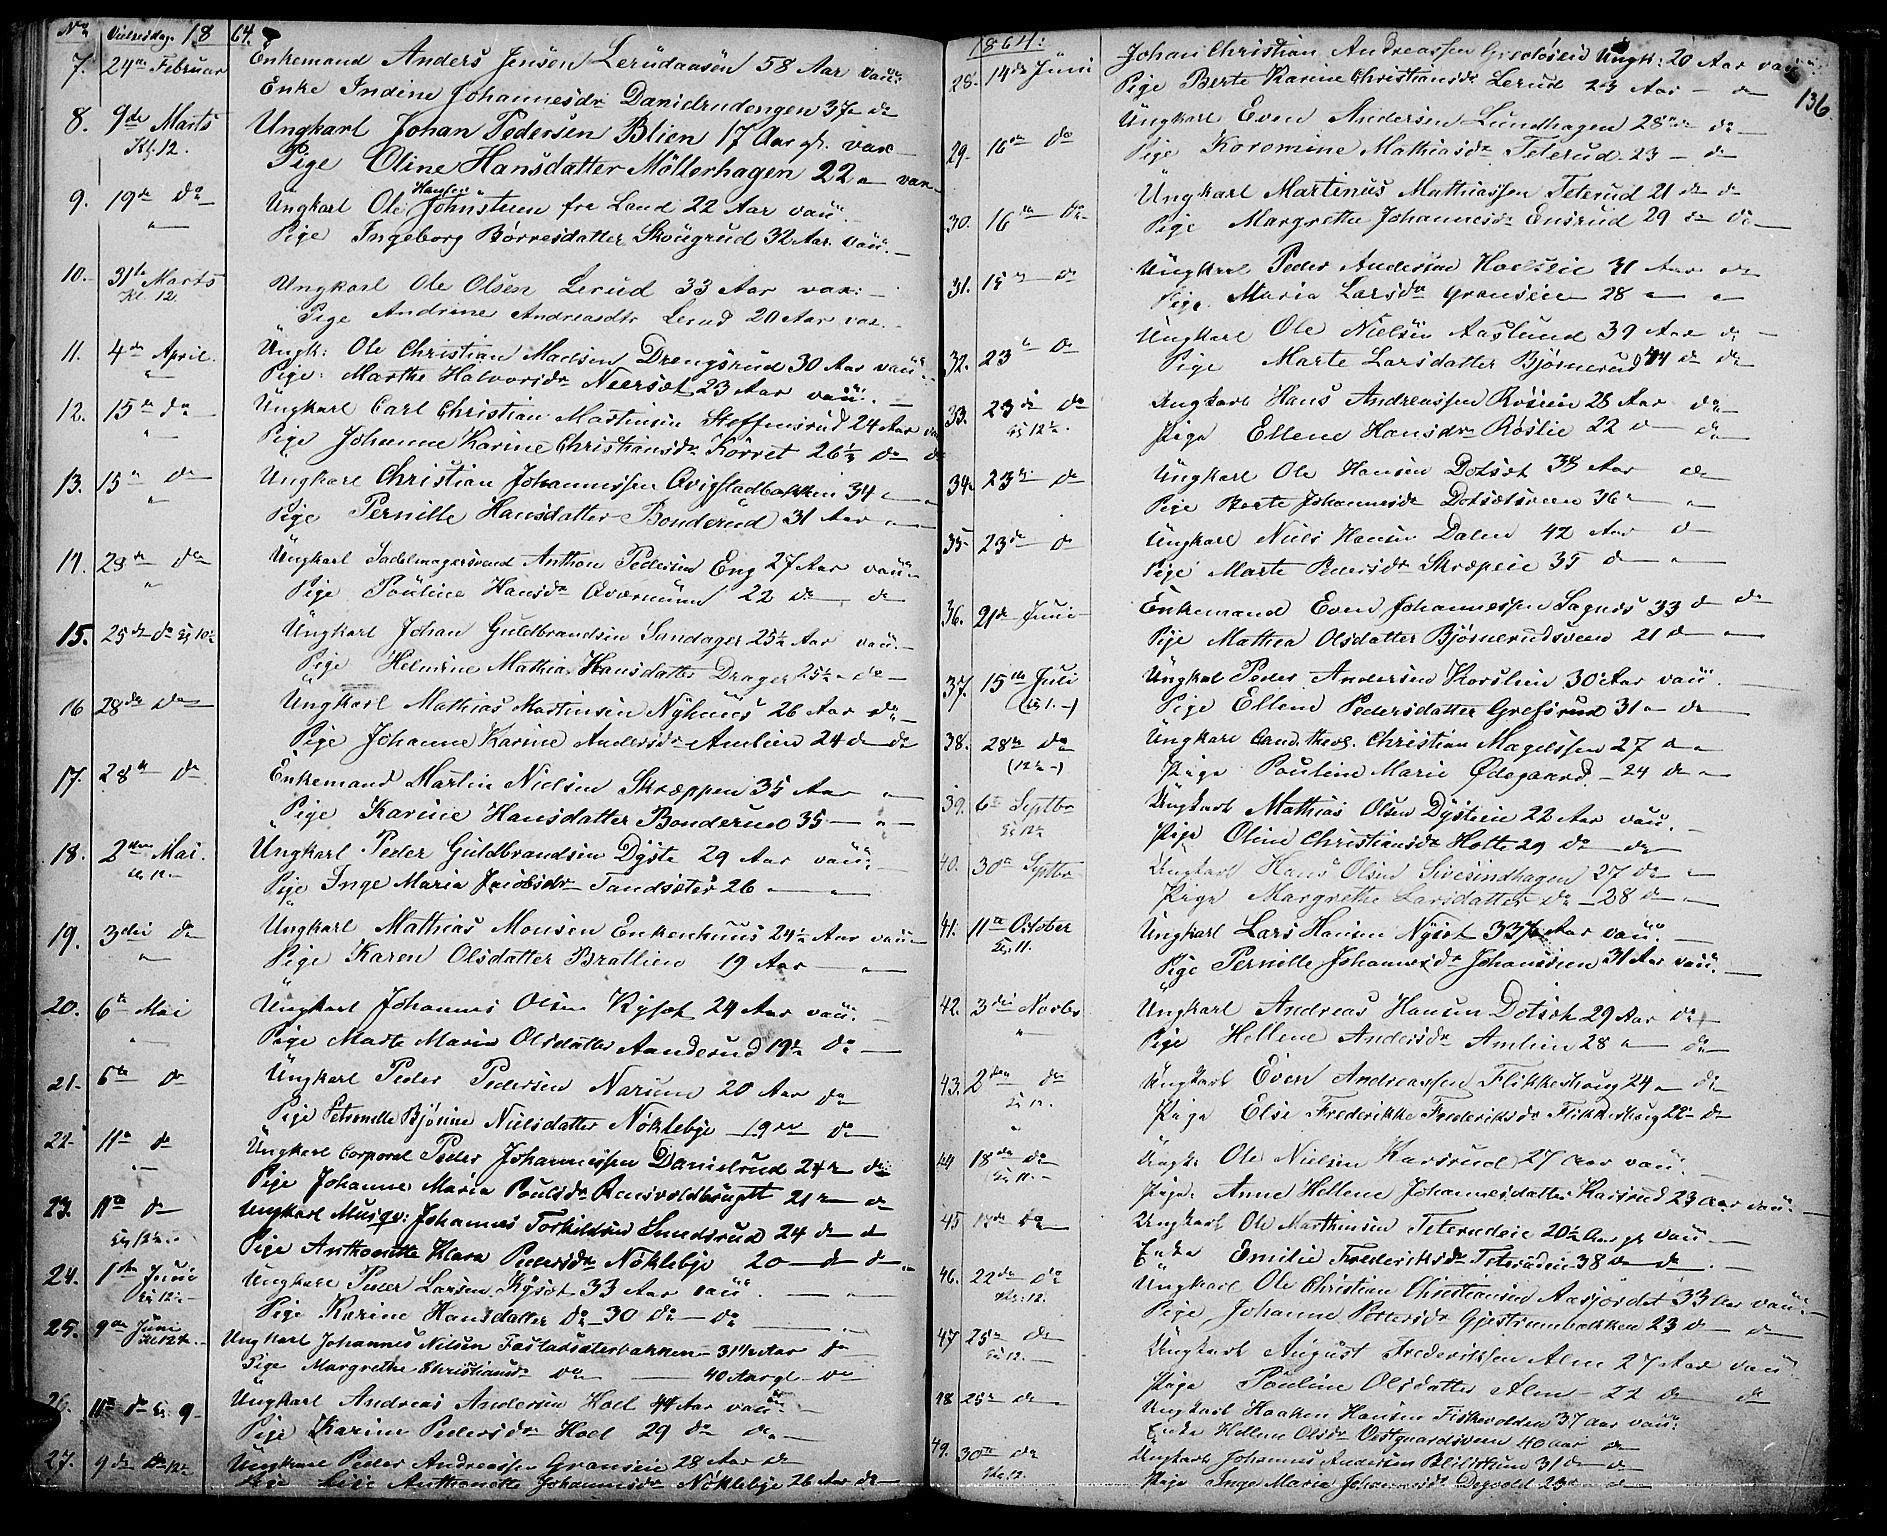 No Vielsesdag. 1864.
7. 24de Februar Enkemand Anders Jensen Lerudaasen 58 Aar vacc.
Enke Indine Johannesdr Danielrudengen 37 do
8. 9de Marts Ungkarl Johan Pedersen Blien 17 Aar gl. vac
Kl. 12. Pige Oline Hansdatter Möllerhagen 22 vac
9. 19de do Ungkarl Ole Hansen Johnstuen fra Land 22 Aar vacc.
Pige Ingeborg Börresdatter Skougrud 32 Aar vacc.
10. 31te Marts Ungkarl Ole Olsen Lerud 33 Aar vac.
Kl. 12. Pige Andrine Andreasdtr Lerud 20 Aar vac.
11. 4de April. Ungk: Ole Christian Madsen Drengsrud 30 Aar vacc.
Pige: Marthe Halvorsdr Neerset 23 Aar vacc.
12. 15de do Ungkarl Carl Christian Martinsen Steffensrud 24 Aar
Pige Johanne Karine Christiansdr Körret 26½ do
13. 15de do Ungkarl Christian Johannessen Qvigstadbakken 34
Pige Pernille Hansdatter Bonderud 31 Aar
14. 23de do Ungkarl Sadelmagersvend Anthon Pedersen Eng 27 Aar vacc.
Pige Pauline Hansdr 22 do do
15. 25de do Kl 10 Ungkarl Johan Guldbrandsen Sandager 25½ Aar vacc.
Pige Helmine Mathia Hansdatter Drager 25½ do
16 28de do Ungkarl Mathias Martinsen Nyhuus 26 Aar do
Pige Johanne Karine Andersdr Amlien 24 do do
17. 28de do Enkemand Martin Nielsen Skræppen 35 Aar
Pige Karine Hansdatter Bonderud 35
18. 2den Mai. Ungkarl Peder Guldbrandsen Dyste 29 Aar vacc.
Kl. 12. Pige Inge Maria Jacobsdr Sandsæter 26
19. 3die do Ungkarl Mathias Monsen Enkenhuus 24½ Aar vacc.
Pige Karen Olsdatter Bratlien 19 Aar
20. 6te Mai Ungkarl Johannes Olsen Kyset 24 Aar vacc.
Pige Marte Maria Olsdatter Aanderud 19½ do
21. 6te do Ungkarl Peder Pedersen Narum 20 Aar do
Pige Petronille Bjönine Nielsdatter Nöklebye 19 do
22. 11te do Ungkarl Corporal Peder Johannessen Danielrud 24 do
Pige Johanne Maria Poulsdr 21 do
23. 11te do Ungkarl Musqv: Johannes Torkildsen Sundsrud 24 do
Kl 12 Pige Anthonette Klara Pedersdr Nöklebye 20 do
24. 1ste Juni Ungkarl Peder Larsen Kyset 33 Aar vacc.
Kl 12 Pige Karine Hansdatter do 30 do do
25. 9de Juni Ungkarl Johannes Nilsen Faslasæterbakken 31½ Aar do
Pige Margrethe Christiansdr do 40 Aar gl. do
26. 11te do Kl. 9 Ungkarl Andreas Andersen Hoel 44 Aar vacc.
Pige Karine Pedersdr Hoel 29 do do
27. 9de do Ungkarl Peder Andreassen Granseie 28 Aar do
Pige Lise Anthonette Johannesdr Nöklebye 26 Aar do
1864.
136
28. 14de Juni Johan Christian Andreassen Ungk: 20 Aar vacc.
Pige Berte Karine Christiansdr Lerud 23 Aar do
29. 16de do Ungkarl Even Andersen Lundhagen 28 do
Pige Koromine Mathiasdr Teterud 23 do
30. 16de do Ungkarl Martinus Mathiassen Teterud 21 do do
Pige Margrethe Johannesdr Ensrud 29 do do
31. 15de do Ungkarl Peder Andersen Hoelseie 31 Aar do
Pige Maria Larsdr Granseie 28
32. 23de do Ungkarl Ole Nielsen Aaslund 39 Aar do
Pige Marte Larsdatter Björnerud 44 do do
33. 23de do Ungkarl Hans Andreassen Röseie 28 Aar do
Kl 12½. Pige Ellene Hansdr Röslie 22 do do
34. 23de do Ungkarl Ole Hansen Dotset 38 Aar do
Pige Berte Johannesdr Dotsetsveen 36
35. 23de do Ungkarl Niels Hansen Dalen 42 Aar do
Pige Marte Pedersdr Skræpeie 35 do
36. 21de Juni Enkemand Even Johannessen Sagnæs 33 do do
Pige Mathea Olsdatter Björnerudsveen 21 do
37. 15de Juli Ungkarl Peder Andersen Korslien 30 Aar vacc.
(Kl 1.) Pige Ellene Pedersdatter Grefsrud 31 do
38. 28de do Ungkarl Cand. theol. Christian Magelssen 27 do
(12) Pige Pauline Marie Ødegaard 24 do
39. 6te Septbr Ungkarl Mathias Olsen Dysteie 22 Aar vacc.
Kl 12 Pige Oline Christiansdr Hotte 29 do do
40. 30te Septbr Ungkarl Hans Olsen Sivesindhagen 27 do
Pige Margrethe Larsdatter do 28 do
41. 11te October Ungkarl Lars Hansen Nyset 33½ Aar vacc.
Kl. 11. Pige Pernille Johannesdr Johanseien 31 Aar vacc.
42. 3die Novbr Ungkarl Andreas Hansen Dotset 29 Aar do
Pige Hellene Andersdr Amlien 28 do
43. 2den do Ungkarl Even Andreassen Flikkeshaug 24 do
Kl 12. Pige Elise Frederikke Frederiksdr Flikkeshaug 22 do
44 18de do Ungk. Ole Nielsen Karsrud 27 Aar vacc.
Kl 11. Pige Anne Hellene Johannesdatter Karsrud 23 Aar vacc.
45 18de do Ungkarl Ole Marthinsen Teterudeie 20½ Aar gl vacc.
Enke Emilie Frederiksdr Teterudeie 38 do do
46. 22de do Ungkarl Ole Christian Christiansen Aasjordet 33 Aar vacc.
Kl. 12. Pige Johanne Pettersdr Gjestrumbakken 23 do do
47 25de do Ungkarl August Frederiksen Alm 27 Aar vacc.
Kl 12. Pige Pauline Olsdatter Alm 22 do do
48 25de do Ungkarl Haaken Hansen Fiskevolden 37 Aar vacc.
Enke Hellene Olsdr Oestgaardsveen 40 Aar do
49. 30te do Ungkarl Johannes Andersen 31 do do
Kl. 12. Pige Inge Maria Johannesdr Degvold 23 do